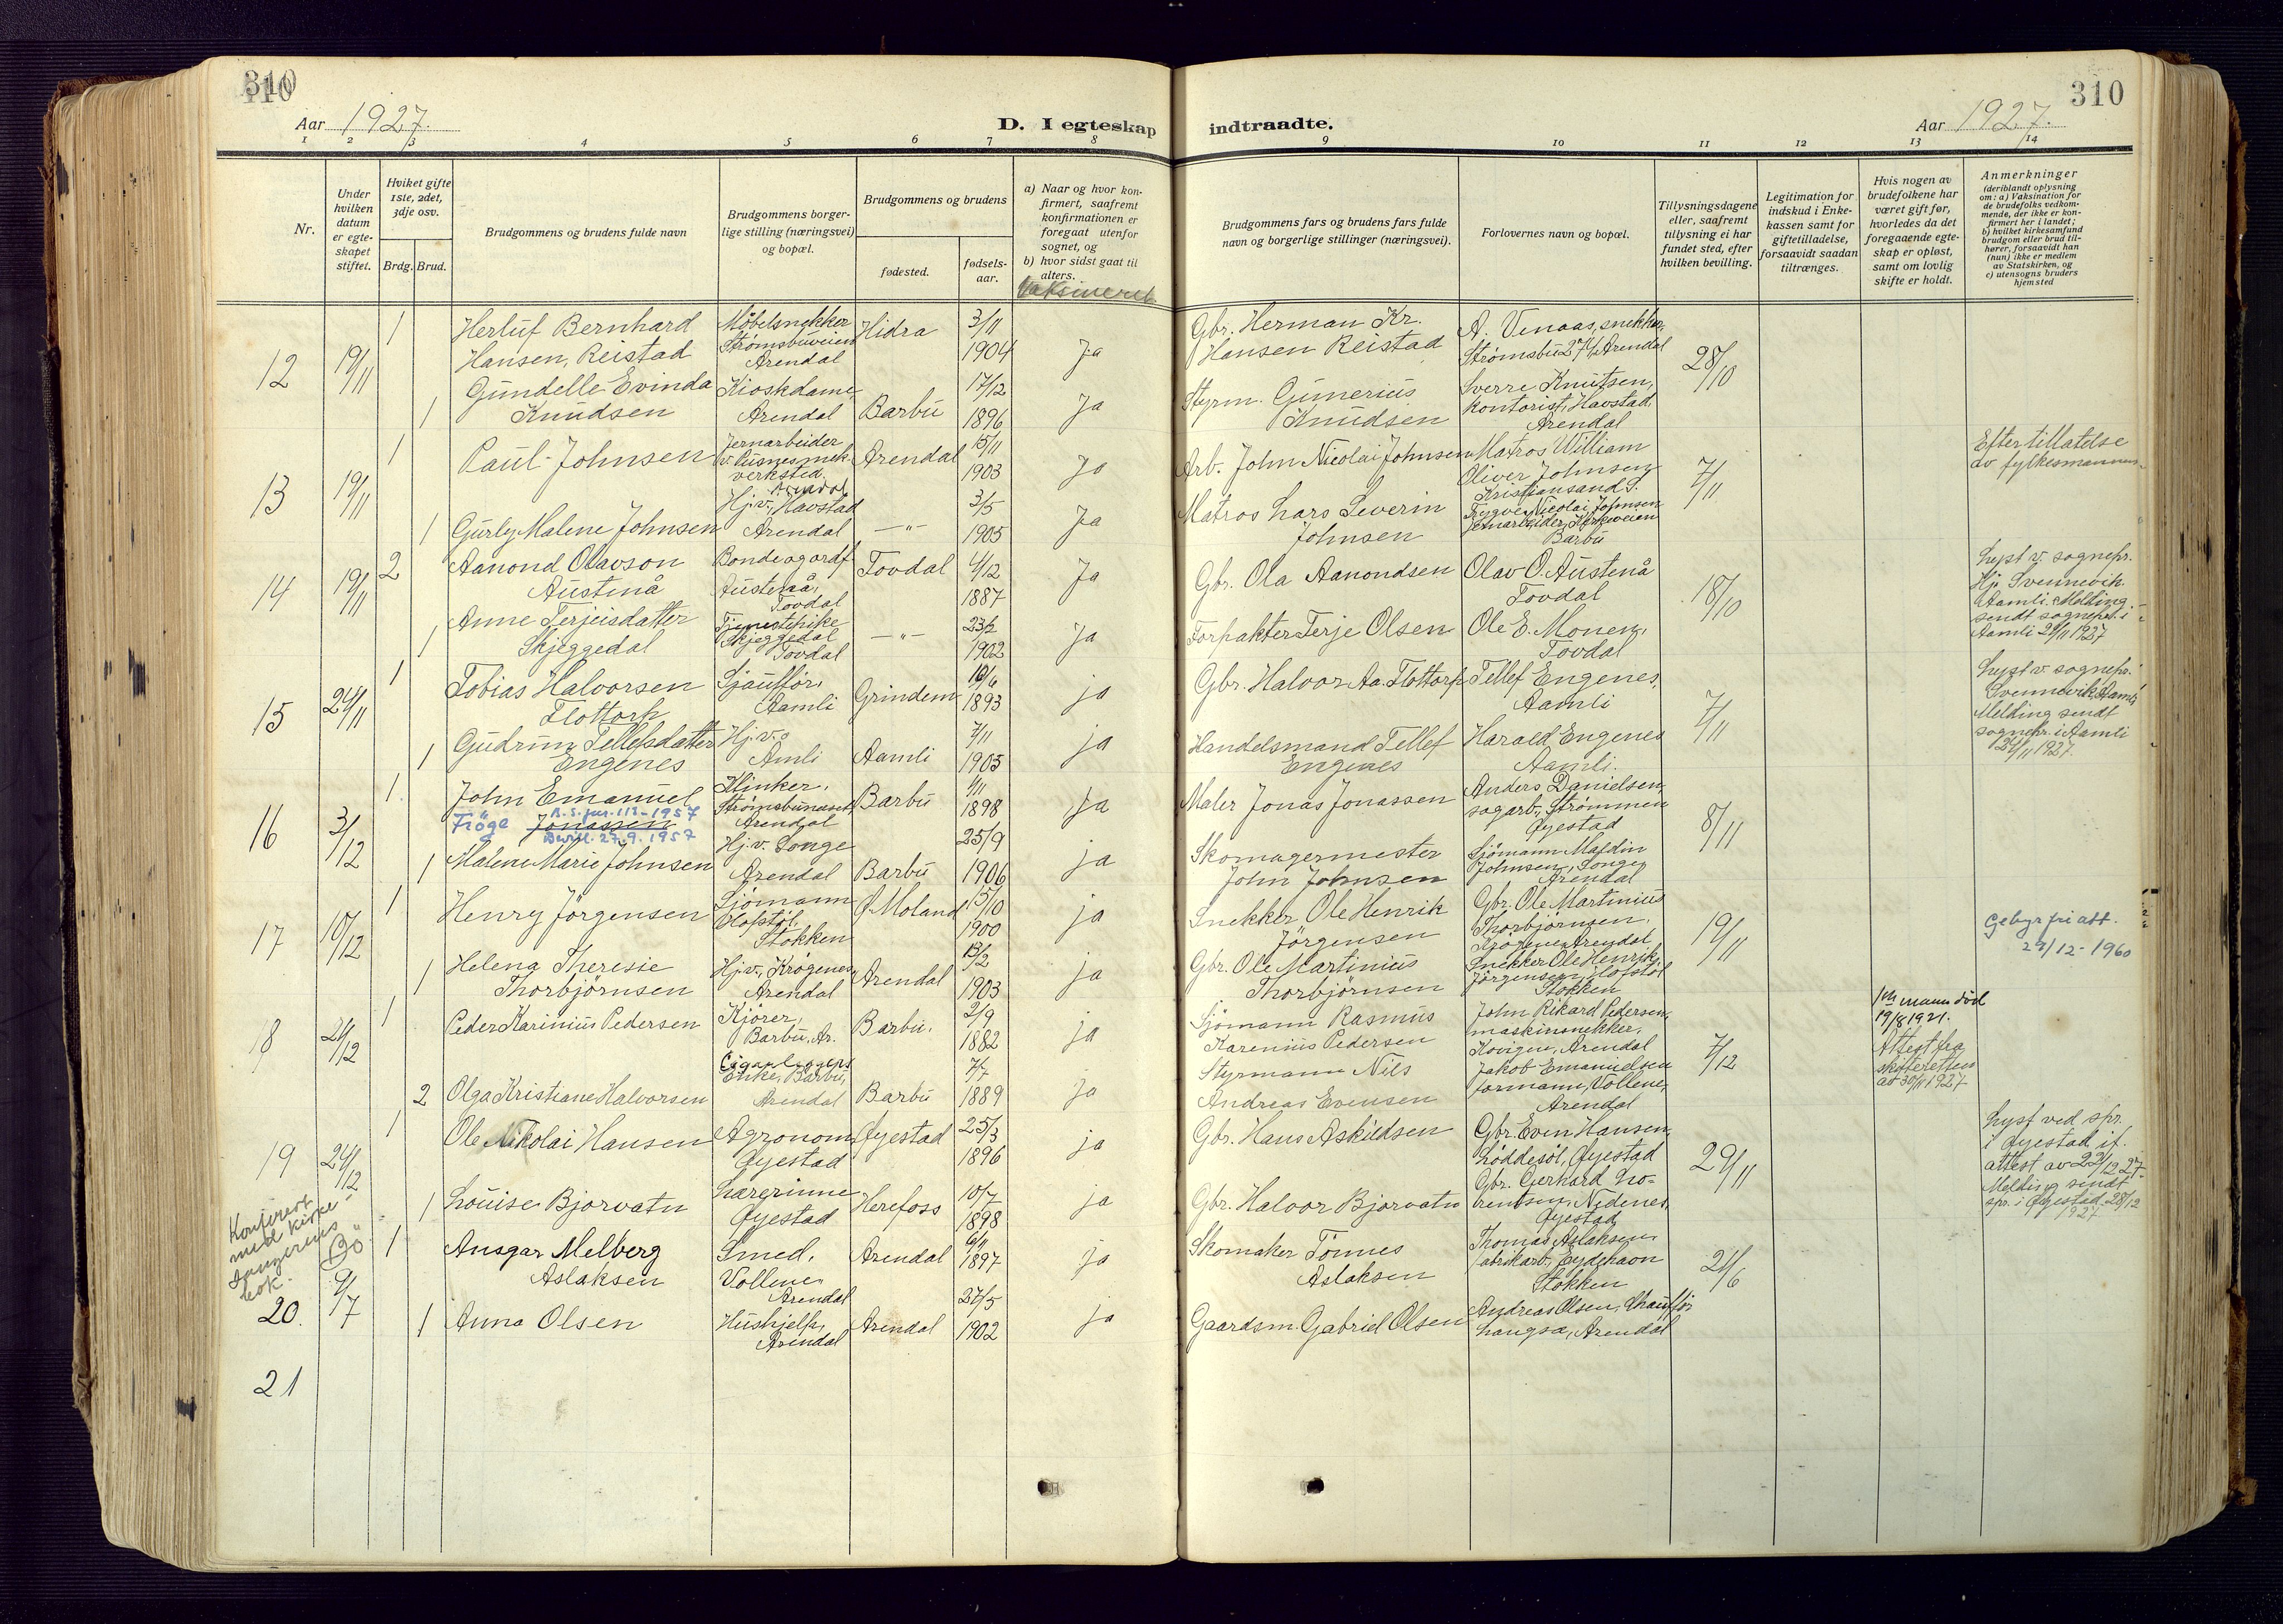 310
310
Aar 1927.
D. I egteskap
indtraadte.
Aar 1927.
1 2 3 4 5 6 7 8
9 10 11 12 13 14
Nr.
Under hvilken datum er egteskapet stiftet.
Hviket gifte 1ste, 2det, 3dje osv.
Brdg. Brud.
Brudgommens og brudens fulde navn
Brudgommens borgerlige stilling (næringsvei) og bopæl.
Brudgommens og brudens
fødested.
fødselsaar.
a) Naar og hvor konfirmert, saafremt konfirmationen er foregaat utenfor sognet, og
b) hvor sidst gaat til alters.
Vaksineret
Brudgommens fars og brudens fars fulde navn og borgerlige stillinger (næringsvei).
Forlovernes navn og bopæl.
Tillysningsdagene eller, saafremt tillysning ei har fundet sted, efter hvilken bevilling.
Legitimation for indskud i Enkekassen samt for giftetilladelse, forsaavidt saadan tiltrænges.
Hvis nogen av brudefolkene har været gift før, hvorledes da det foregaaende egteskap er opløst, samt om lovlig skifte er holdt.
Anmerkninger
(deriblandt oplysning om: a) Vaksination for de brudefolks vedkommende, der ikke er konfirmert her i landet; b) hvilket kirkesamfund brudgom eller brud tilhører, forsaavidt han (hun) ikke er medlem av Statskirken, og c) utensogns bruders hjemsted
12 19/11 1 Herluf Bernhard Hansen, Reistad Møbelsnekker Strømsbuveien Arendal Hidra 3/11 1904 Ja Gbr. Herman Kr. Hansen Reistad A. Venaas, snekker, Strømsbu 27 b Arendal 28/10
1 Gundelle Evinda Knudsen Kioskdame, Arendal Barbu 17/12 1896 Ja Styrm. Gumerius Knudsen Sverre Knutsen, kontorist, Havstad, Arendal
13 19/11 1 Paul Johnsen Jernarbeider v. Pusnes mek. verksted. Arendal Arendal 15/11 1903 Ja Arb. John Nicolai Johnsen Matros William Oliver Johnsen, Kristiansand S. 7/11 Efter tillatelse av fylkesmannen
1 Gurly Malene Johnsen Hj.v., Havstad Arendal —"— 3/5 1905 Ja Matros Lars Severin Johnsen Trygve Nicolai Johnsen Jernarbeider, Kirkeveien Barbu
14 19/11 2 Aanond Olavson Austenå Bonde og ordf. Austenå, Tovdal Tovdal 4/12 1887 Ja Gbr. Ola Aanondsen Olav O. Austenå Tovdal 18/10 Lyst v. sognepr. Hj. Svennevik. Aamli. Melding sendt sognepr. i Aamli 21/11 1927
1 Anne Terjeisdatter Skjeggedal Tjenestepike Skjeggedal Tovdal —"— 23/2 1902 Ja Forpakter Terje Olsen Ole E. Monen, Tovdal
15 24/11 1 Tobias Halvorsen Flottorp Sjauffør, Aamli Grindem 1893 ja Gbr. Halvor Aa. Flottorp Tellef Engenes, Aamli 7/11 Lyst v. sognepr. Svennevik, Aamli Melding sendt sognepr. i Aamli 24/11 1927.
1 Gudrun Tellefsdatter Engenes Hj.v. Amli Aamli 7/11 1905 ja Handelsmand Tellef Engenes Harald Engenes Aamli.
16 3/12 1 John Emanuel Jonassen Fröge 1957 Bevill. 27.9.1957 Klinker, Strømsbunæset Arendal Barbu 1/11 1898 Ja Maler Jonas Jonassen Anders Danielsen, sagarb. Strømmen Øyestad 8/11
1 Malene Marie Johnsen Hj.v. Songe Arendal Barbu 25/9 1906 ja Skomagermester John Johnsen Sjömann Maldin Johnsen, Songe, Arendal
17 10/12 1 Henry Jörgensen Sjömann Olofstöl, Stokken Ø. Moland 15/10 1900 ja Snekker Ole Henrik Jörgensen Gbr. Ole Martinius Thorbjørnsen, Krögenes Arendal 19/11 Gebyrfri att. 29/12-1960
1 Helena Theresie Thorbjörnsen Hj.v., Krögenes Arendal Arendal 13/2 1903 ja Gbr. Ole Martinius Thorbjørnsen Snekker Ole Henrik Jörgensen, Olofstöl Stokken
18 24/12 1 Peder Karinius Pedersen Kjører, Barbu, Ar. Barbu. 2/9 1882 ja Sjömann Rasmus Karenius Pedersen John Rikard Pedersen, maskinsnekker, Kovigen, Arendal 7/12 1ste mann död 19/8 1921. Attest fra skifteretten av 30/11 1927
2 Olga Kristiane Halvorsen Enke, Barbu, Arendal Barbu 7/7 1889 Ja Styrmann Nils Andreas Evensen Jakob Emanuelsen formann, Vollene, Arendal
19 24/12 1 Ole Nikolai Hansen Agronom Øyestad Øyestad 25/3 1896 ja Gbr. Hans Askildsen Gbr. Even Hansen, Løddesöl, Øyestad 29/11 Lyst ved spr. i Øyestad if. attest av 23/12 27. Melding sendt spr. i Øyestad 28/12 1927
1 Louise Bjorvatn Lærerinne Øyestad Herefoss 10/7 1898 ja Gbr. Halvor Bjorvatn Gbr. Gerhard Lorentsen, Nedenes, Øyestad
Konferert med kirkesangerens bok. BÖ
20. 9/7 1 Ansgar Melberg Aslaksen Smed, Vollene, Arendal Arendal 6/11 1897 ja Skomaker Tönnes Aslaksen Thomas Aslaksen, fabrikarb., Eydehavn Stokken 21/6
1 Anna Olsen Hushjelp, Arendal Arendal 27/5 1902 ja Gaardsm. Gabriel Olsen Andreas Olsen, Chaufför Langsa, Arendal
21